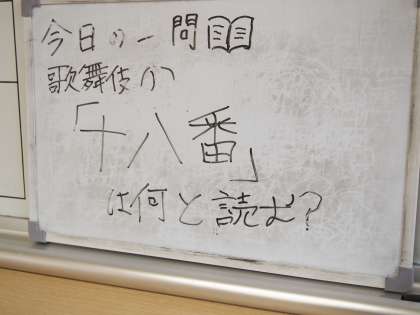 今日の一問
歌舞伎の
「十八番」
は何と読む?